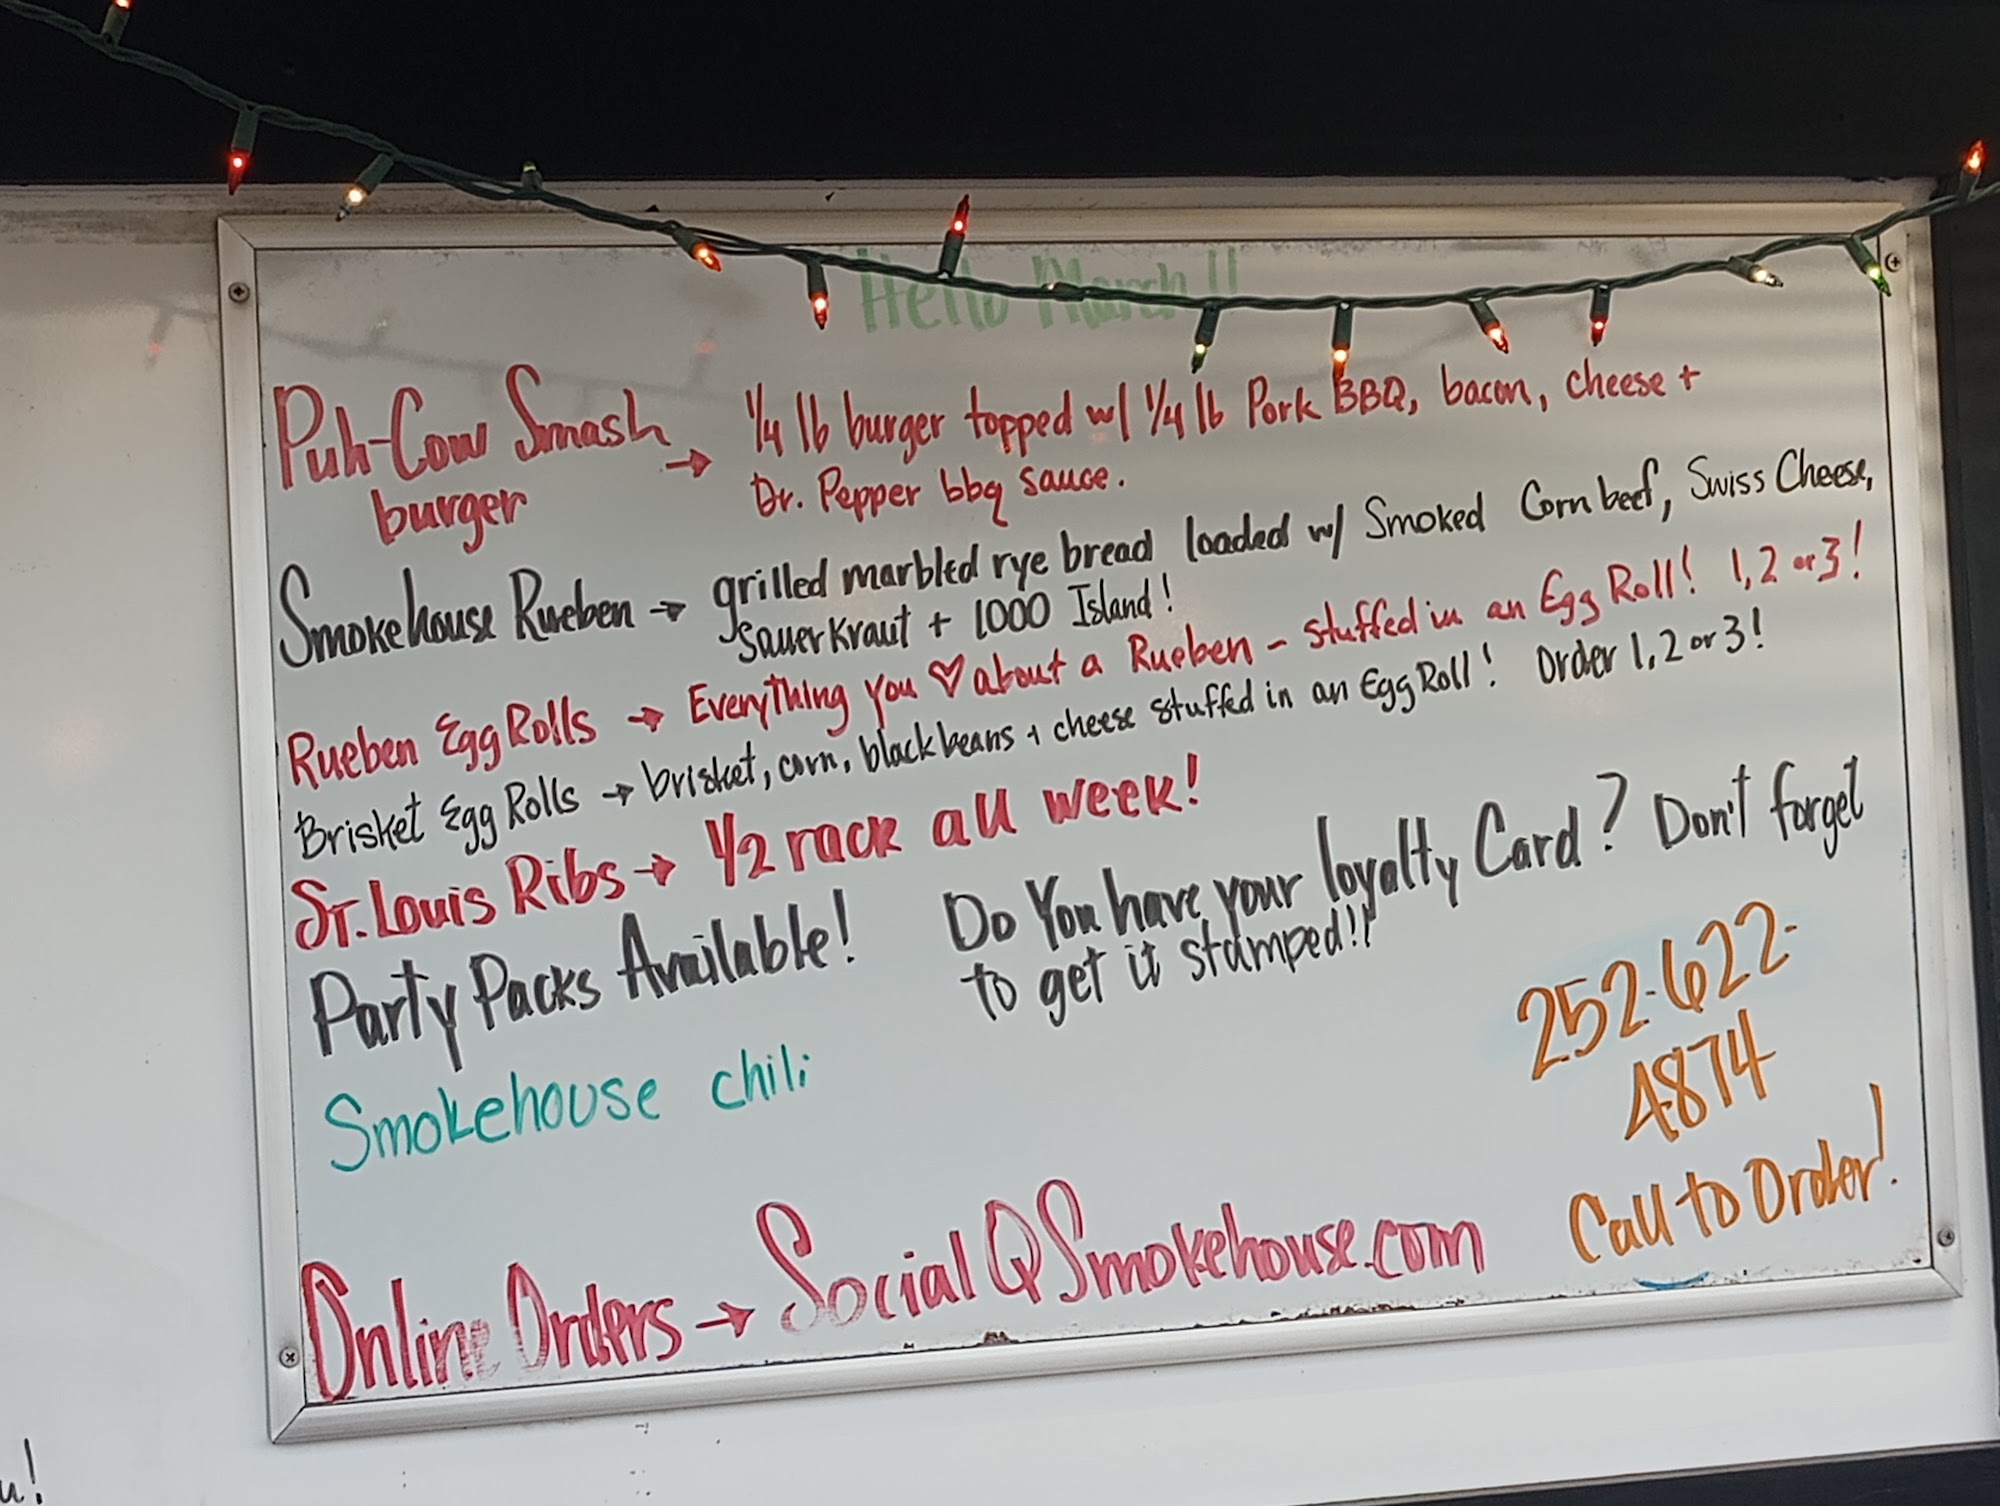 Hello March!!
Puh-Cow Smash → 1/4 lb burger topped w/ 1/4 lb Pork BBQ, bacon, cheese +
burger Dr. Pepper bbq sauce.
Smokehouse Rueben → grilled marbled rye bread loaded w/ Smoked Corn beef, Swiss Cheese,
Sauerkraut + 1000 Island!
Rueben Egg Rolls → Everything you ♡ about a Rueben - stuffed in an Egg Roll! 1, 2 or 3!
Brisket Egg Rolls → brisket, corn, black beans + cheese stuffed in an Egg Roll! Order 1, 2 or 3!
St. Louis Ribs → 1/2 rack all week!
Party Packs Available! Do You have your loyalty Card? Don't forget
to get it stamped!!
Smokehouse chili
252-622-
4874
Call to Order!
Online Orders → SocialQSmokehouse.com